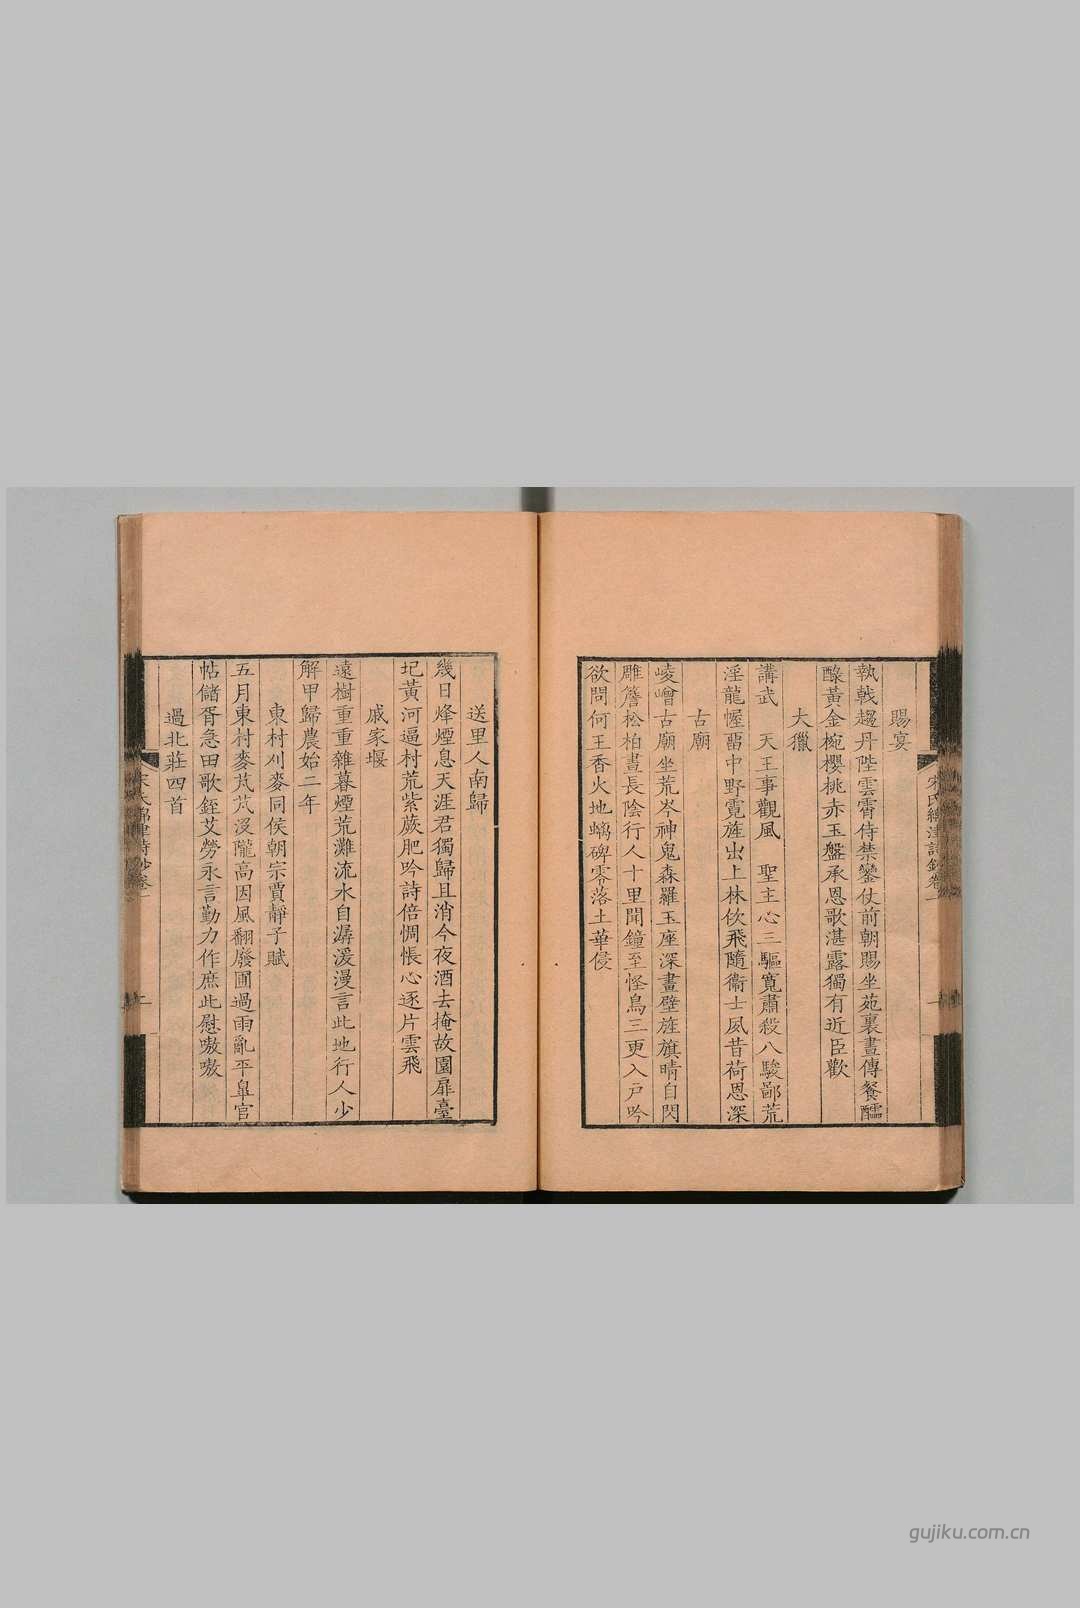 賜宴
執戟趨丹陛雲霄侍禁鑾仗前朝賜坐苑裏晝傳餐醽
醁黃金椀櫻桃赤玉盤承恩歌湛露獨有近臣歡
大獵
講武　天王事觀風　聖主心三驅寬肅殺八駿鄙荒
淫龍幄畱中野霓旌出上林佽飛隨衞士夙昔荷恩深
古廟
崚嶒古廟坐荒岑神鬼森羅玉座深畫壁旌旗晴自閃
雕簷松柏晝長陰行人十里聞鐘至怪鳥三更入戸吟
欲問何王香火地螭碑零落土華侵
宋氏綿津詩鈔卷一
送里人南歸
幾日烽煙息天涯君獨歸且消今夜酒去掩故園扉臺
圯黃河逼村荒紫蕨肥吟詩倍惆悵心逐片雲飛
戚家堰
遠樹重重雜暮煙荒灘流水自潺湲漫言此地行人少
解甲歸農始二年
東村刈麥同侯朝宗賈靜子賦
五月東村麥芃芃沒隴高因風翻廢圃過雨亂平臯官
帖儲胥急田歌銍艾勞永言勤力作庶此慰嗷嗷
過北莊四首
宋氏綿津詩鈔卷一
gujiku.com.cn